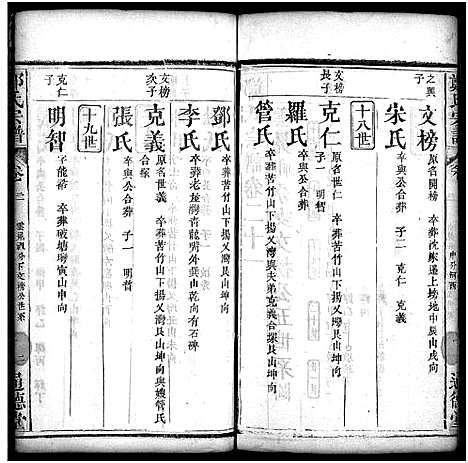 之興子
文榜
原名開榜 卒葬沈家邊上塝地中艮山戌向
宋氏
卒與公合葬 子二 克仁 克義
十八世
文榜長子
克仁
原名世仁 卒葬苦竹山下揚又灣艮山坤向
子一 明智
羅氏
卒與公合葬
管氏
卒葬苦竹山下揚又灣與夫弟克義合塚艮山坤向
鄧氏
卒葬苦竹山下揚又灣艮山坤向
李氏
卒葬老龍灣青龍嘴外巽山乾向有石碑
文榜次子
克義
原名世義 卒葬苦竹山下揚又灣艮山坤向與嫂管氏
合塚
張氏
卒與公合葬 子一 明普
十九世
克仁子
明智
字能 卒葬破塘塝寅山申向
氏宗譜
卷二
文榜公世系
三
通德堂